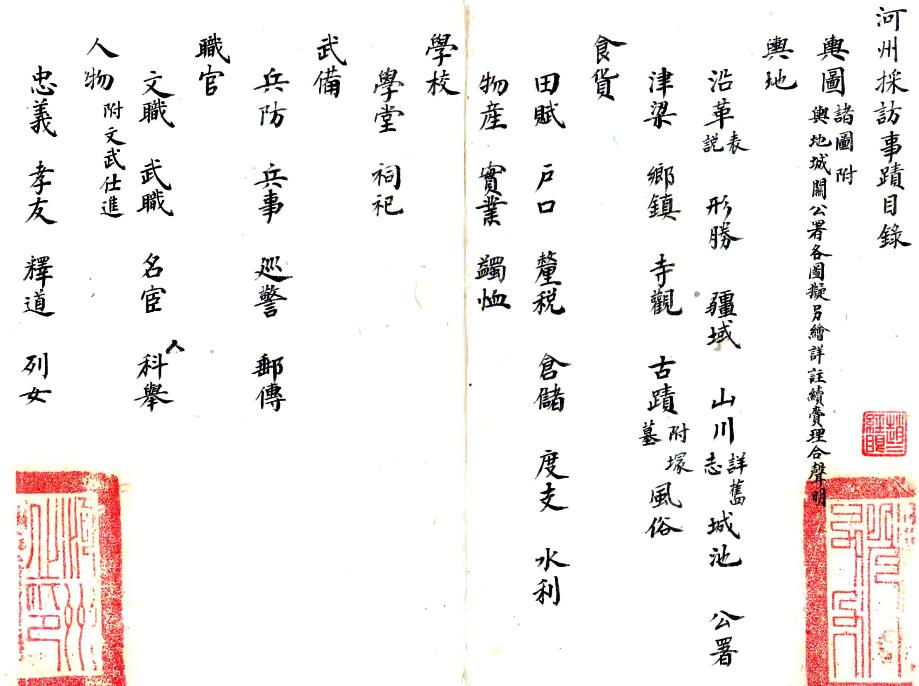 河州採訪事蹟目錄
輿圖 諸圖附
輿地城關公署各圖擬另繪詳註續賫理合聲明
輿地
沿革 表說 形勝 疆域 山川 詳舊志 城池 公署
津梁 鄉鎮 寺觀 古蹟 附塚墓 風俗
食貨
田賦 戶口 釐稅 倉儲 度支 水利
物產 實業 蠲恤
學校
學堂 祠祀
武備
兵防 兵事 巡警 郵傳
職官
文職 武職 名宦 科舉
人物 附文武仕進
忠義 孝友 釋道 列女
河州之印